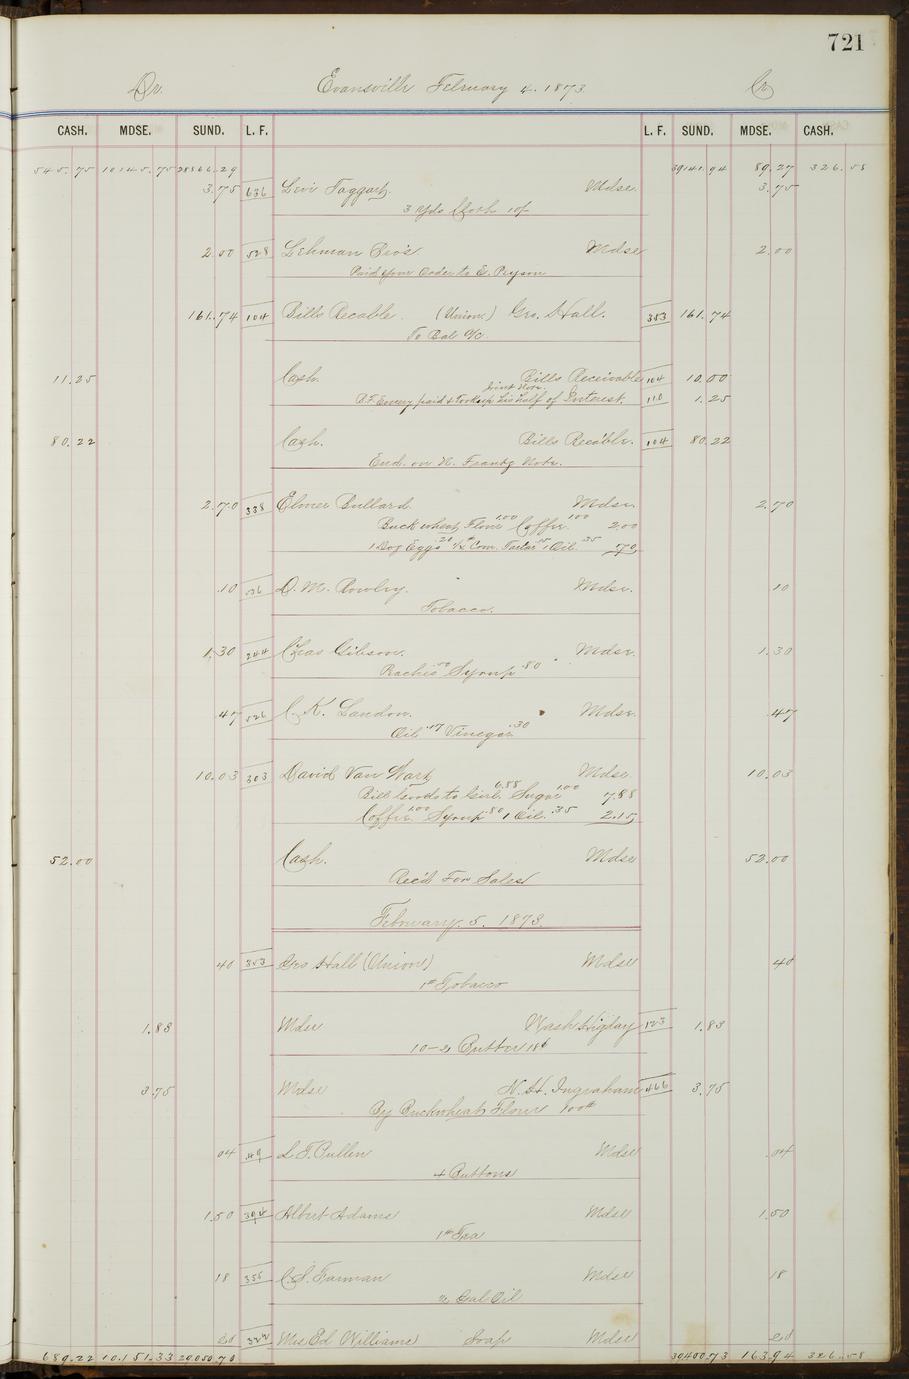 721
Dr. Evansville February 4. 1873 Cr
CASH. MDSE. SUND. L. F. L. F. SUND. MDSE. CASH.
545.75 10145.75 39141.94 89.27 326.58
3.75 636 Levi Taggart. Mdse. 3.75
3 Yds Cloth 10/
2.00 528 Lehman Bro's. Mdse 2.00
Paid your Order to E. Pryson
161.74 104 Bills Recable. (Union) Geo. Hall. 353 161.74
To Bal a/c
11.25 Cash. Bills Receivable 104 10.00
Joint Note.
B.F. Emery paid & took up his half of Interest. 110 1.25
80.22 Cash. Bills Recable. 104 80.22
End. on N. Frantz Note.
2.70 338 Elmer Bullard. Mdse. 2.70
Buckwheat Flour 1.00 Coffee 1.00 2.00
1 Doz Eggs .20 Tartar .15 1 Oil .35 70
.10 D. M. Rowley. Mdse. .10
Tobacco.
1.30 244 Chas Gibson. Mdse. 1.30
.50 Syrup .80
47 526 C. K. Landon. Mdse. .47
Oil .17 Vinegar .30
10.03 303 David Van Wart Mdse. 10.03
Bill Goods to Girl. 6.88 Sugar 1.00 7.88
Coffee 1.00 Syrup .80 1 Oil .35 2.15
52.00 Cash. Mdse 52.00
Rec'd For Sales
February. 5. 1873.
40 353 Geo Hall (Union) Mdse 40
1# Tobacco
1.83 Mdse Wash Higday 123 1.83
10-2 Butter 18¢
3.75 Mdse N. H. Ingraham 466 3.75
By Buckwheat Flour 100#
04 49 L. F. Pullen Mdse .04
4 Buttons
1.50 394 Albert Adams Mdse 1.50
1# Tea
18 355 C. S. Farman Mdse 18
Gal Oil
Mrs Ed Williams Soap Mdse
689.22 10.151.33 30400.73 163.94 326.58